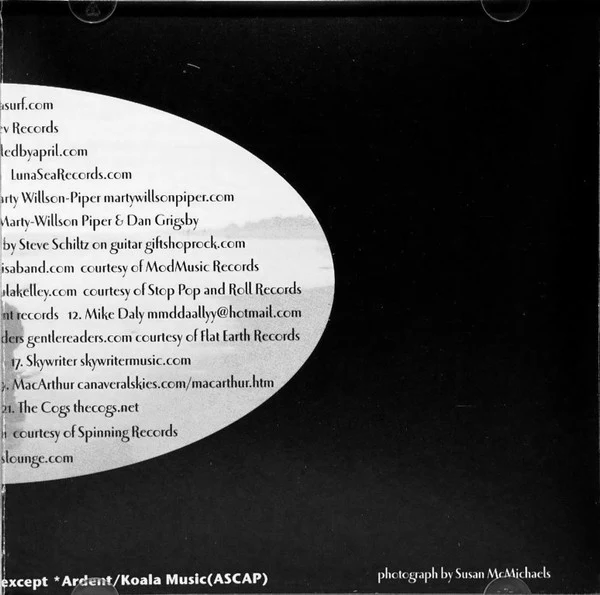 asurf.com
ev Records
ledbyapril.com
LunaSeaRecords.com
arty Willson-Piper martywillsonpiper.com
Marty-Willson Piper & Dan Grigsby
by Steve Schiltz on guitar giftshoprock.com
isaband.com courtesy of ModMusic Records
ulakelley.com courtesy of Stop Pop and Roll Records
nt records 12. Mike Daly mmddaallyy@hotmail.com
ders gentlereaders.com courtesy of Flat Earth Records
17. Skywriter skywritermusic.com
9. MacArthur canaveralskies.com/macarthur.htm
21. The Cogs thecogs.net
courtesy of Spinning Records
slounge.com
except *Ardent/Koala Music(ASCAP)
photograph by Susan McMichaels